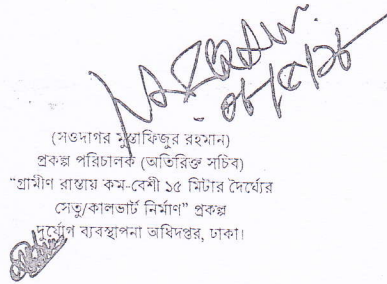 (সওদাগর মুস্তাফিজুর রহমান)
প্রকল্প পরিচালক (অতিরিক্ত সচিব)
“গ্রামীণ রাস্তায় কম-বেশী ১৫ মিটার দৈর্ঘ্যের
সেতু/কালভার্ট নির্মাণ” প্রকল্প
দুর্যোগ ব্যবস্থাপনা অধিদপ্তর, ঢাকা।